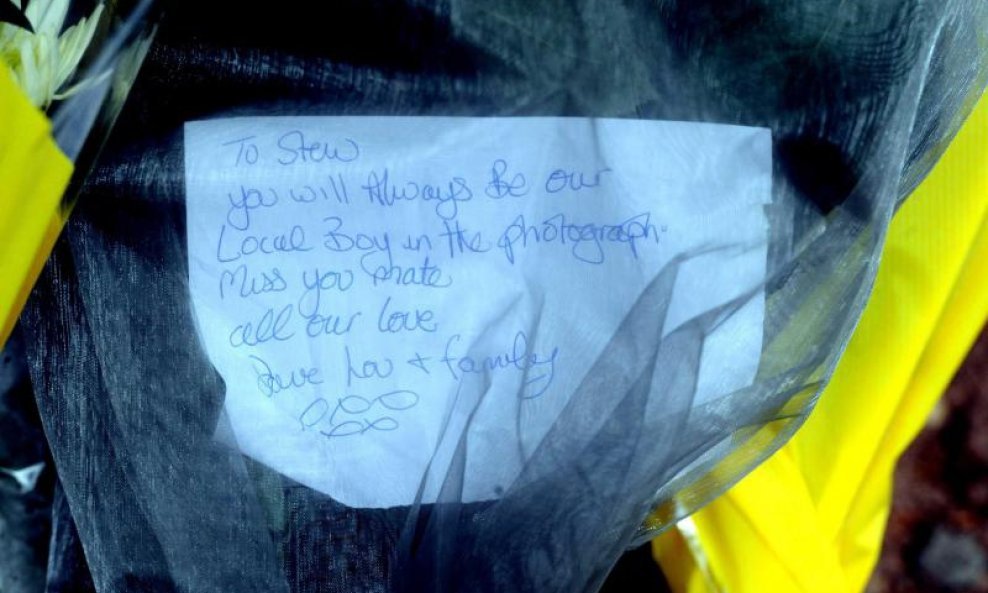 To Stew
you will Always Be our
Local Boy in the photograph.
Miss you mate
all our love
Dave Lou + family